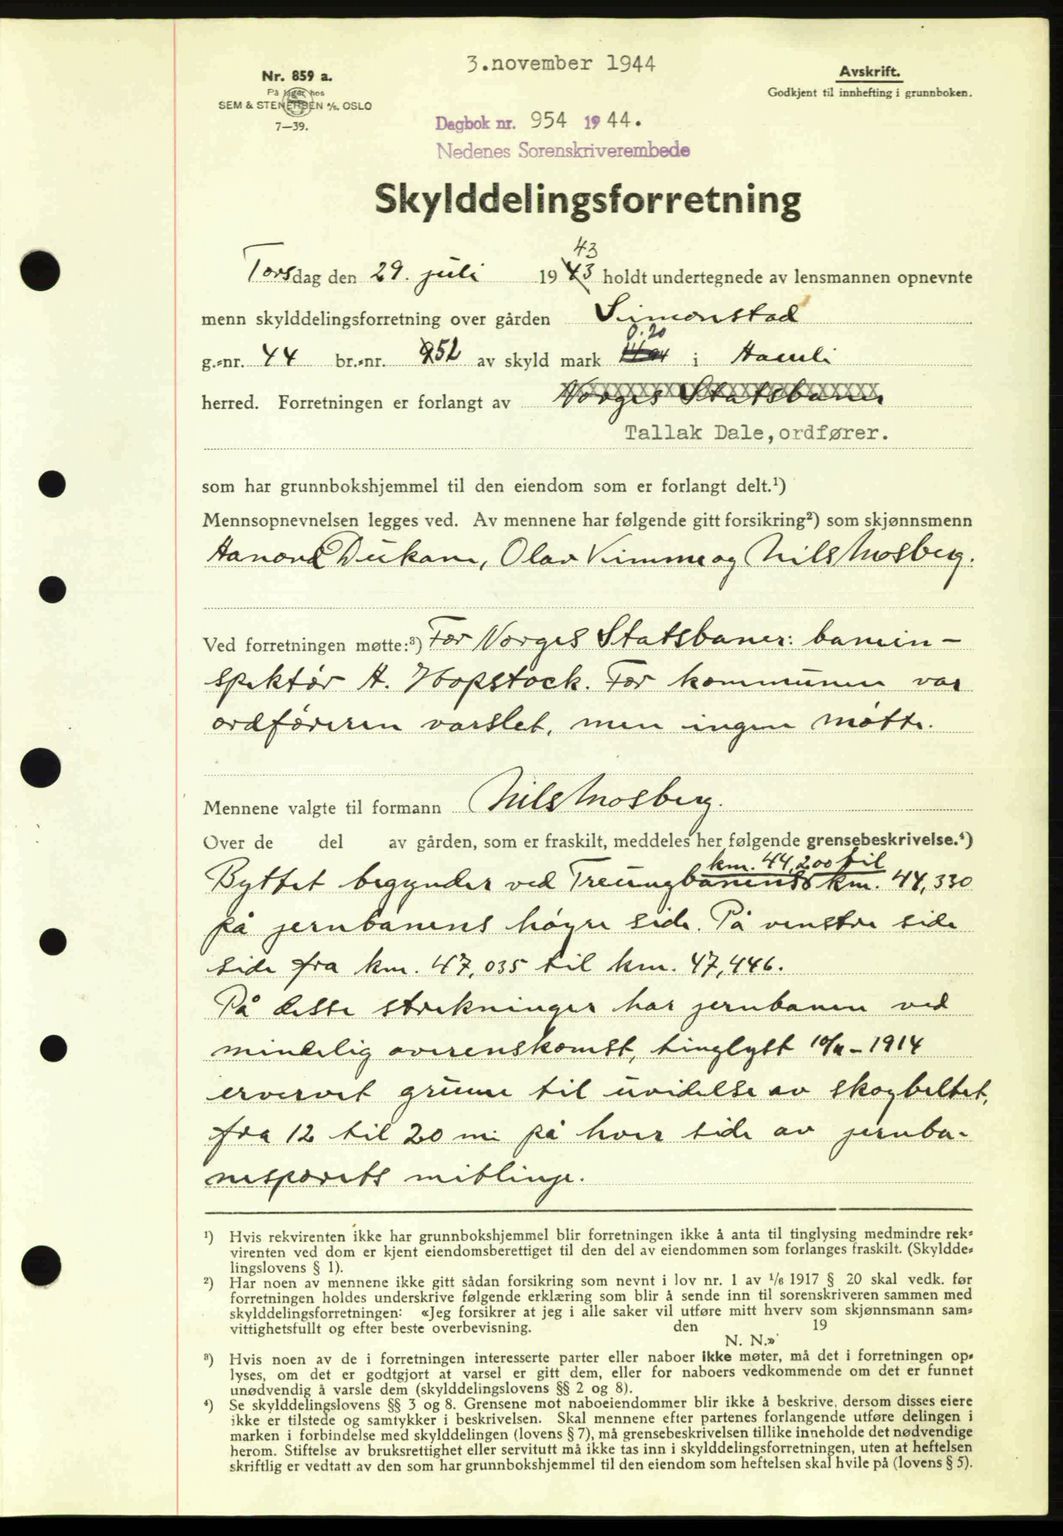 3.november 1944
Nr. 859 a.
På lager hos
SEM & STENERSEN A/S. OSLO
7—39.
Avskrift.
Godkjent til innhefting i grunnboken.
Dagbok nr. 954 1944.
Nedenes Sorenskriverembede
Skylddelingsforretning
43
Torsdag den 29. juli 1943 holdt undertegnede av lensmannen opnevnte
menn skylddelingsforretning over gården Simonstad
0.20
g.-nr. 44 br.-nr. 52 av skyld mark i Haomli
herred. Forretningen er forlangt av Norges Statsbaner
Tallak Dale, ordfører.
som har grunnbokshjemmel til den eiendom som er forlangt delt.¹)
Mennsopnevnelsen legges ved. Av mennene har følgende gitt forsikring²) som skjønnsmenn
Olav Vimme og Nils Mosberg.
Ved forretningen møtte:³) For Norges Statsbaner: banein-
spektør H. Hopstock. For kommunen var
ordføreren varslet, men ingen møtte.
Mennene valgte til formann Nils Mosberg.
Over de del av gården, som er fraskilt, meddeles her følgende grensebeskrivelse.⁴)
km. 44,200 til
Byttet begynder ved Treungbanens km. 44,330
på jernbanens høyre side. På venstre side
side fra km. 47,035 til km. 47,446.
På disse strekninger har jernbanen ved
mindelig overenskomst, tinglyst 1914
ervervet grunn til uvidelse av skogbeltet,
fra 12 til 20 m på hver side av jernba-
nesporets mitlinje.
¹) Hvis rekvirenten ikke har grunnbokshjemmel blir forretningen ikke å anta til tinglysing medmindre rek-
virenten ved dom er kjent eiendomsberettiget til den del av eiendommen som forlanges fraskilt. (Skyldde-
lingslovens § 1).
²) Har noen av mennene ikke gitt sådan forsikring som nevnt i lov nr. 1 av 1/6 1917 § 20 skal vedk. før
forretningen holdes underskrive følgende erklæring som blir å sende inn til sorenskriveren sammen med
skylddelingsforretningen: «Jeg forsikrer at jeg i alle saker vil utføre mitt hverv som skjønnsmann sam-
vittighetsfullt og efter beste overbevisning. den 19
N. N.»
³) Hvis noen av de i forretningen interesserte parter eller naboer ikke møter, må det i forretningen op-
lyses, om det er godtgjort at varsel er gitt dem, eller for naboers vedkommende om det er funnet
unødvendig å varsle dem (skylddelingslovens §§ 2 og 8).
⁴) Se skylddelingslovens §§ 3 og 8. Grensene mot naboeiendommer blir ikke å beskrive, dersom disses eiere
ikke er tilstede og samtykker i beskrivelsen. Skal mennene efter partenes forlangende utføre delingen i
marken i forbindelse med skylddelingen (lovens § 7), må grensebeskrivelsen tillike inneholde det nødvendige
herom. Stiftelse av bruksrettighet eller servitutt må ikke tas inn i skylddelingsforretningen, uten at heftelsen
skriftlig er vedtatt av den som har grunnbokshjemmel til den eiendom som heftelsen skal hvile på (lovens § 5).